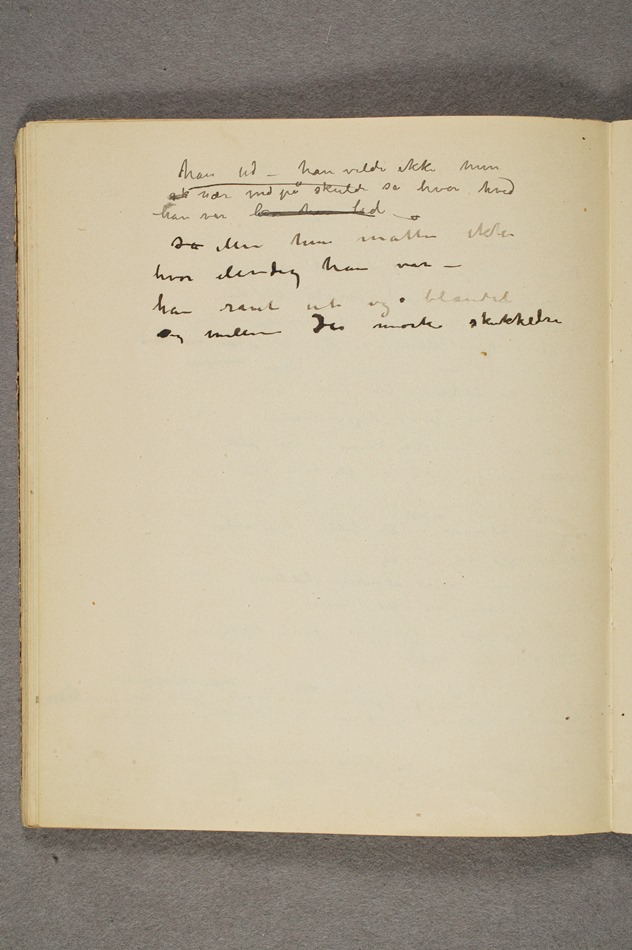 han ud – han vilde ikke hun
nær ind på skulde se hvor hvid
han var
Men hun matte ikke
hvor elendig han var –
han ravet ut og blandet
sig mellem De mørke skikkelser